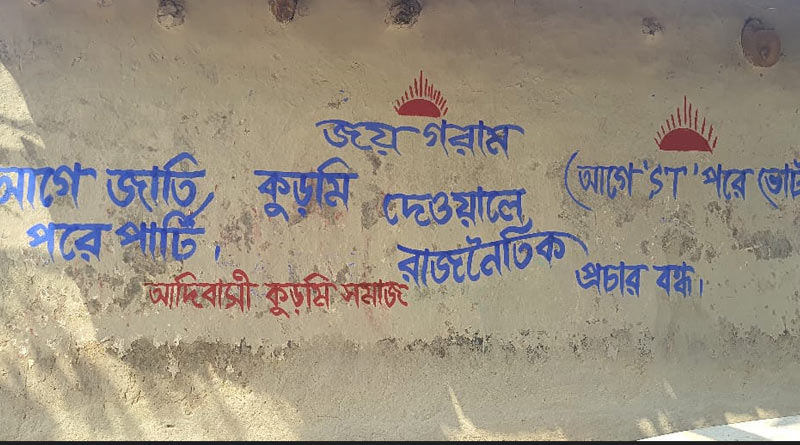 জয় গরাম
আগে জাতি
পরে পার্টি,
কুড়মি দেওয়ালে
রাজনৈতিক প্রচার বন্ধ।
(আগে 'ST' পরে ভোট
আদিবাসী কুড়মি সমাজ